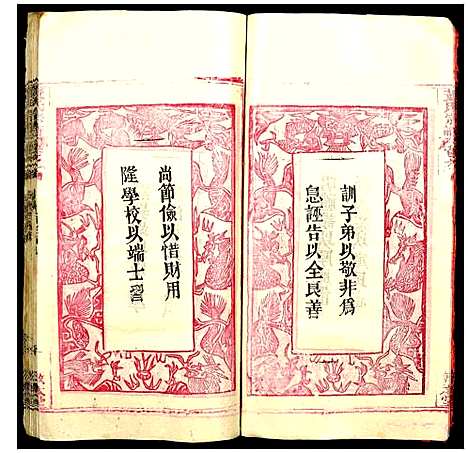 訓子弟以敬非為
息誣告以全良善
尚節儉以惜財用
隆學校以端士習